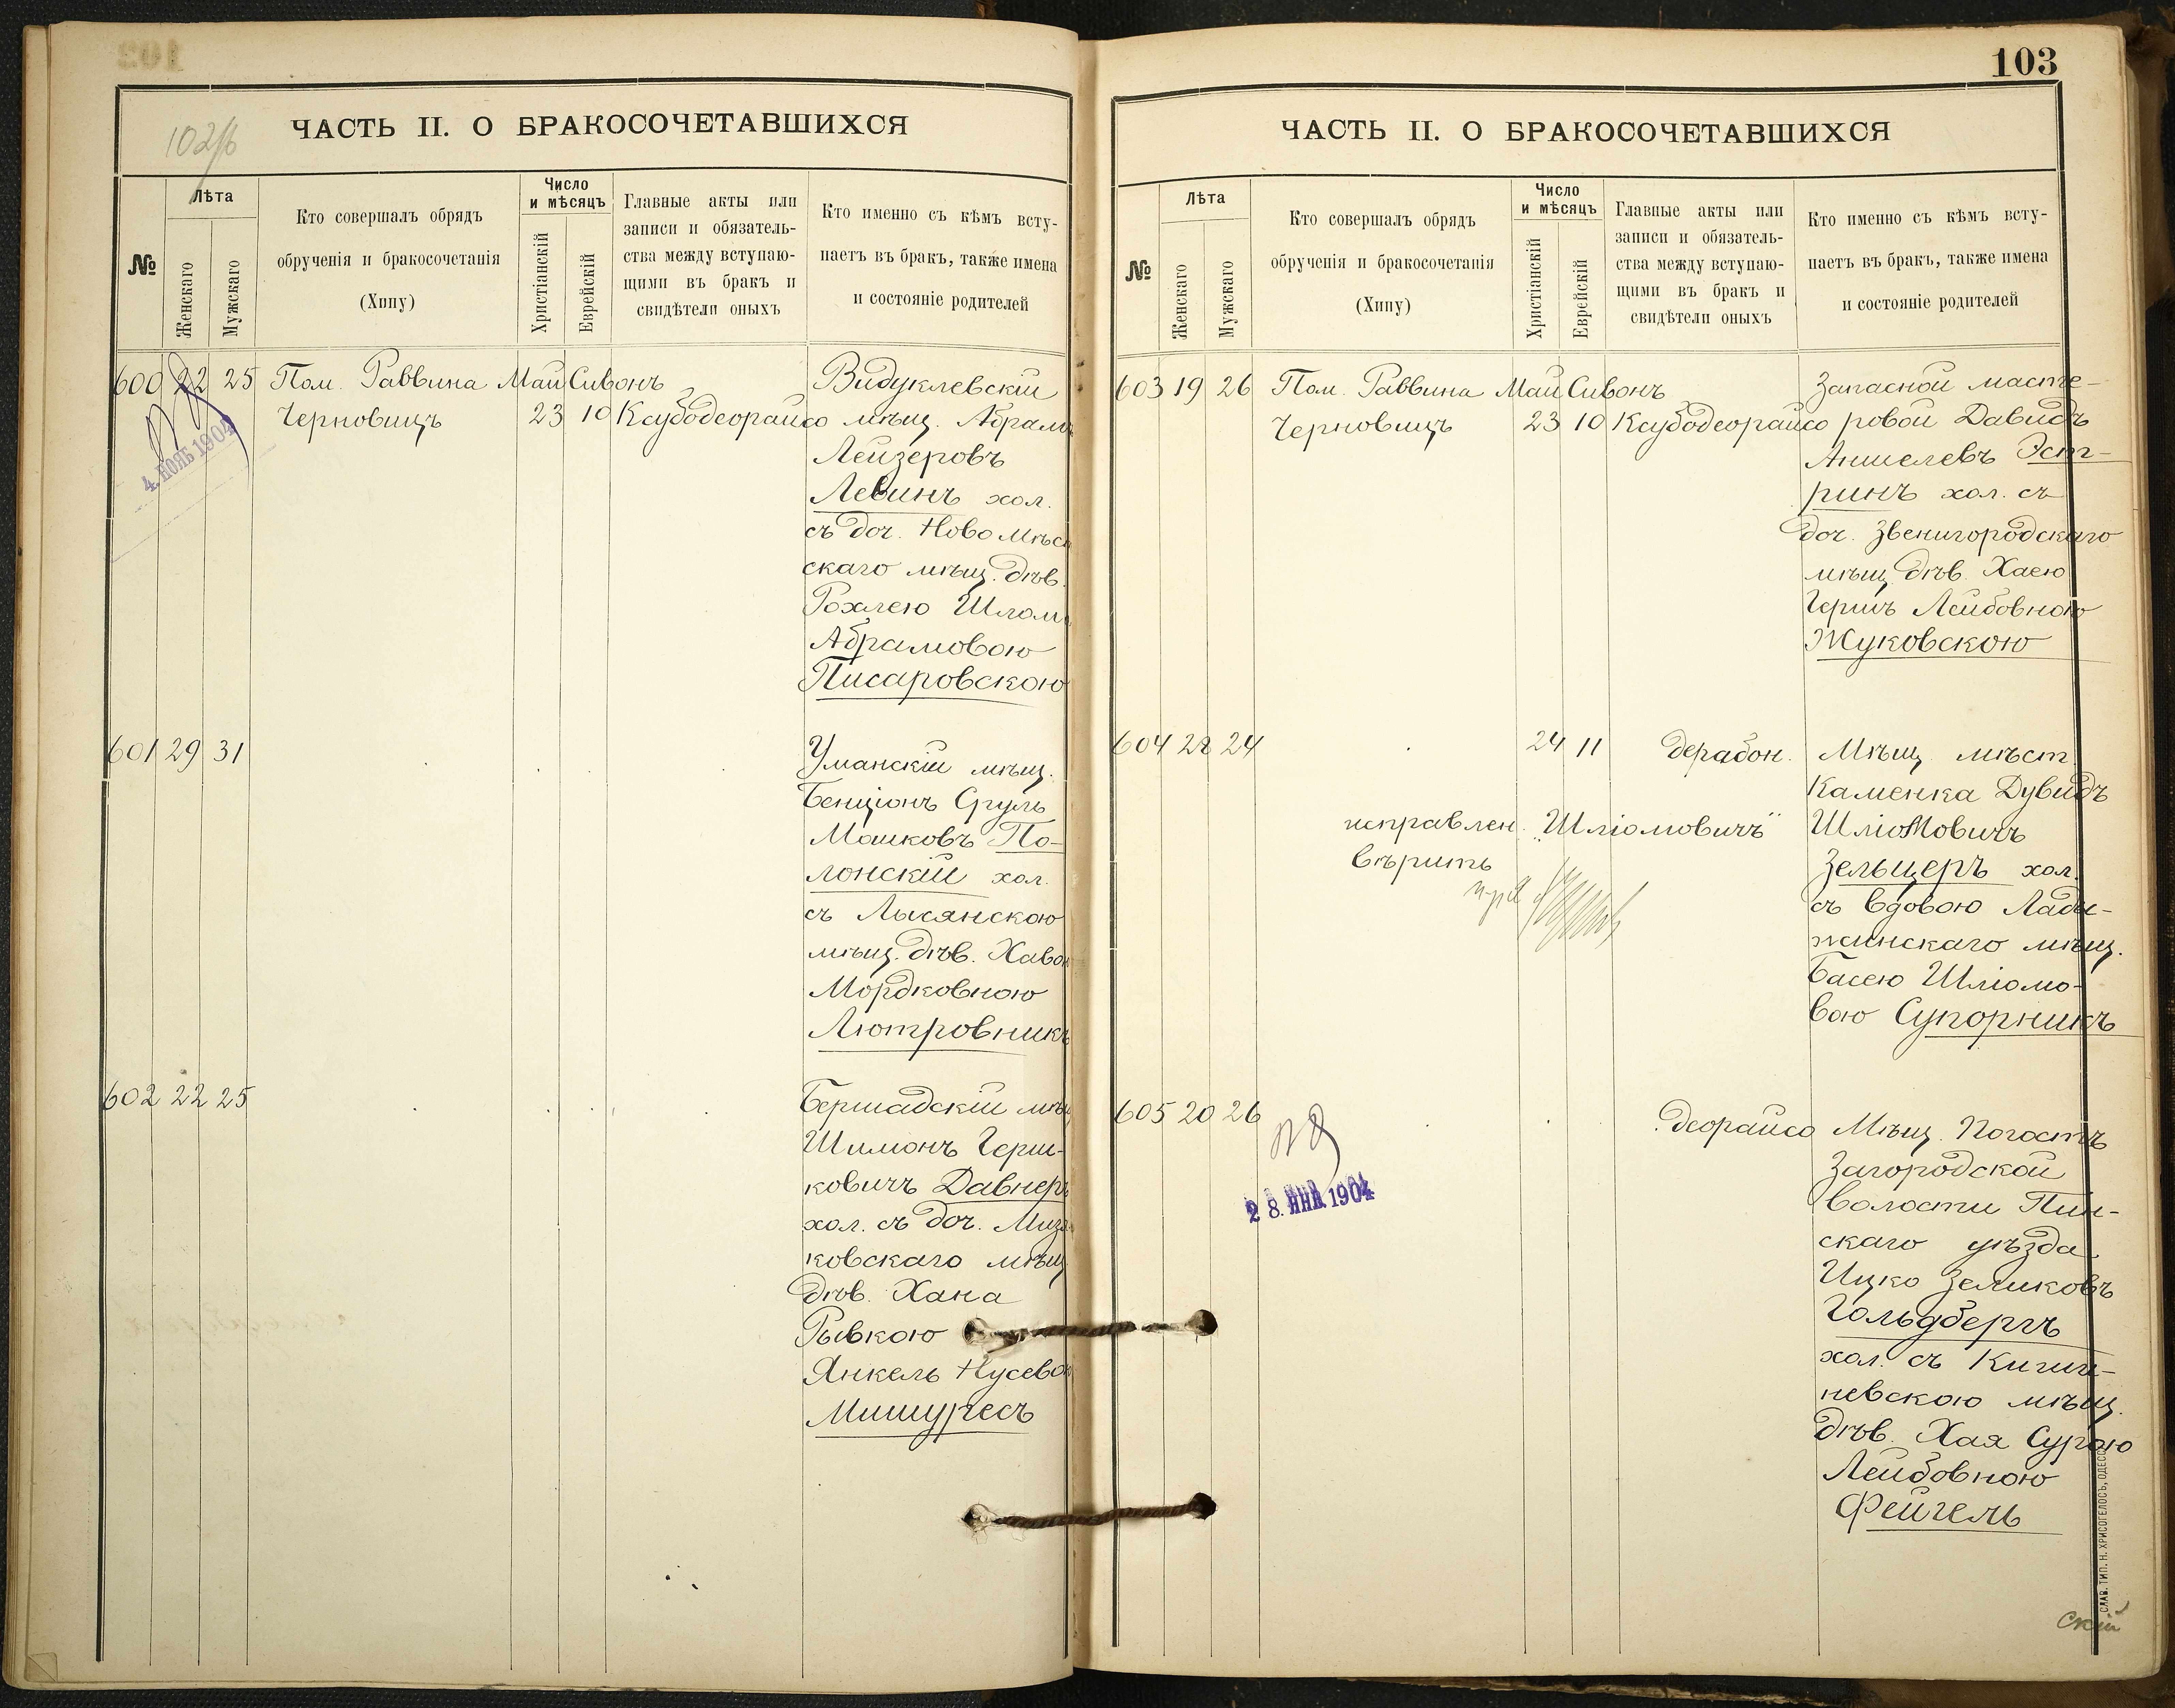 102/б
ЧАСТЬ II. О БРАКОСОЧЕТАВШИХСЯ
№
Лѣта
Женскаго
Мужскаго
Кто совершалъ обрядъ
обрученія и бракосочетанія
(Хипу)
Число
и мѣсяцъ
Христіанскій
Еврейскій
Главные акты или
записи и обязатель-
ства между вступаю-
щими въ бракъ и
свидѣтели оныхъ
Кто именно съ кѣмъ всту-
паетъ въ бракъ, также имена
и состояніе родителей
600 22 25 Пом. Раввина Май Сивонъ Видуклевскій
Черновицъ 23 10 Ксубодеорайсо мѣщ. Абрамъ
4. НОЯБ 1904
Лейзеровъ
Левинъ хол.
съ доч. Ново Мѣс
скаго мѣщ. дѣв.
Рохлею Шлом
Абрамовою
Писаровскою
601 29 31 Уманскій мѣщ.
Бенціонъ Сруль
Машковъ По-
лонскій хол.
съ Лысянскою
мѣщ. дѣв. Хавою
Мордковною
Лютровникъ
602 22 25 Бершадскій мѣщ
Шимонъ Герш-
ковичъ Давнеръ
хол. съ доч. Мизя
ковскаго мѣщ
дѣв. Хана
Рывкою
Янкель Нусевою
Мишуресъ
103
ЧАСТЬ II. О БРАКОСОЧЕТАВШИХСЯ
№
Лѣта
Женскаго
Мужскаго
Кто совершалъ обрядъ
обрученія и бракосочетанія
(Хипу)
Число
и мѣсяцъ
Христіанскій
Еврейскій
Главные акты или
записи и обязатель-
ства между вступаю-
щими въ бракъ и
свидѣтели оныхъ
Кто именно съ кѣмъ всту-
паетъ въ бракъ, также имена
и состояніе родителей
603 19 26 Пом. Раввина Май Сивонъ Запасной масте-
Черновицъ 23 10 Ксубодеорайсо ровой Давидъ
Аншелевъ Эст-
ринъ хол. съ
доч. Звенигородскаго
мѣщ. дѣв. Хаею
Гершъ Лейбовною
Жуковскою
604 28 24 24 11 дерабон. Мѣщ. мѣст.
Каменка Дувидъ
исправлен. „Шліомовичъ" Шліомовичъ
вѣрить
Зельцеръ хол.
съ вдовою Лады-
жинскаго мѣщ.
Басею Шліомо-
вою Супорникъ
605 20 26 деорайсо Мѣщ. Погостъ
28. ЯНВ. 1904
Загородской
волости Пин-
скаго уѣзда
Ицко Зеликовъ
Гольдбергъ
хол. съ Киши-
невскою мѣщ.
дѣв. Хая Сурою
Лейбовною
Фейгель
СЛАВ. ТИП. Н. ХРИСОГЕЛОСЪ, ОДЕССА
скій